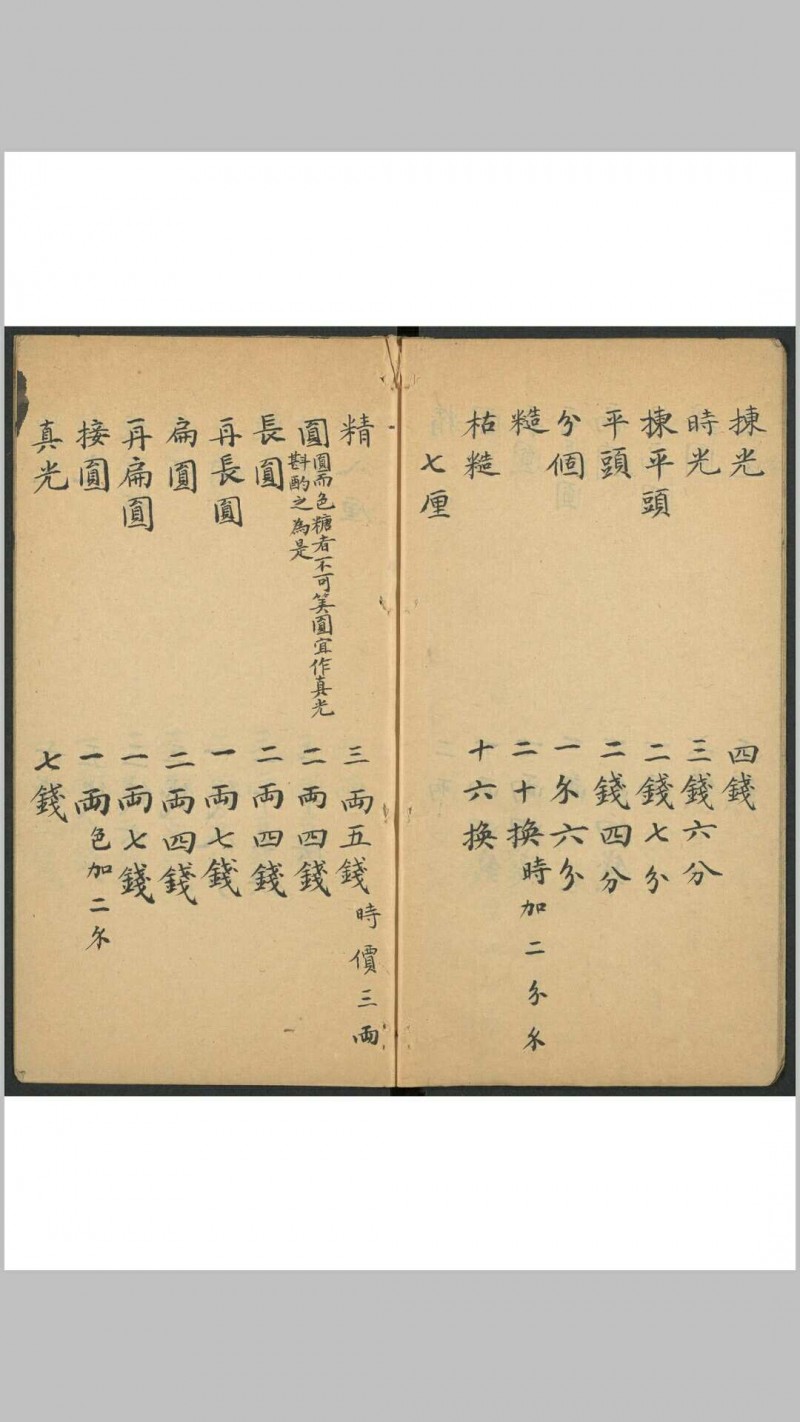 揀光 四錢
時光 三錢六分
揀平頭 二錢七分
平頭 二錢四分
分個 一尔六分
糙 二十換時加二分尔
枯糙 十六換
七厘
精 三両五錢時價三両
圓圓而色糖者不可筭圓宜作真光
斟酌之為是 二両四錢
長圓 二両四錢
再長圓 一両七錢
扁圓 二両四錢
再扁圓 一両七錢
接圓 一両色加二尔
真光 七錢